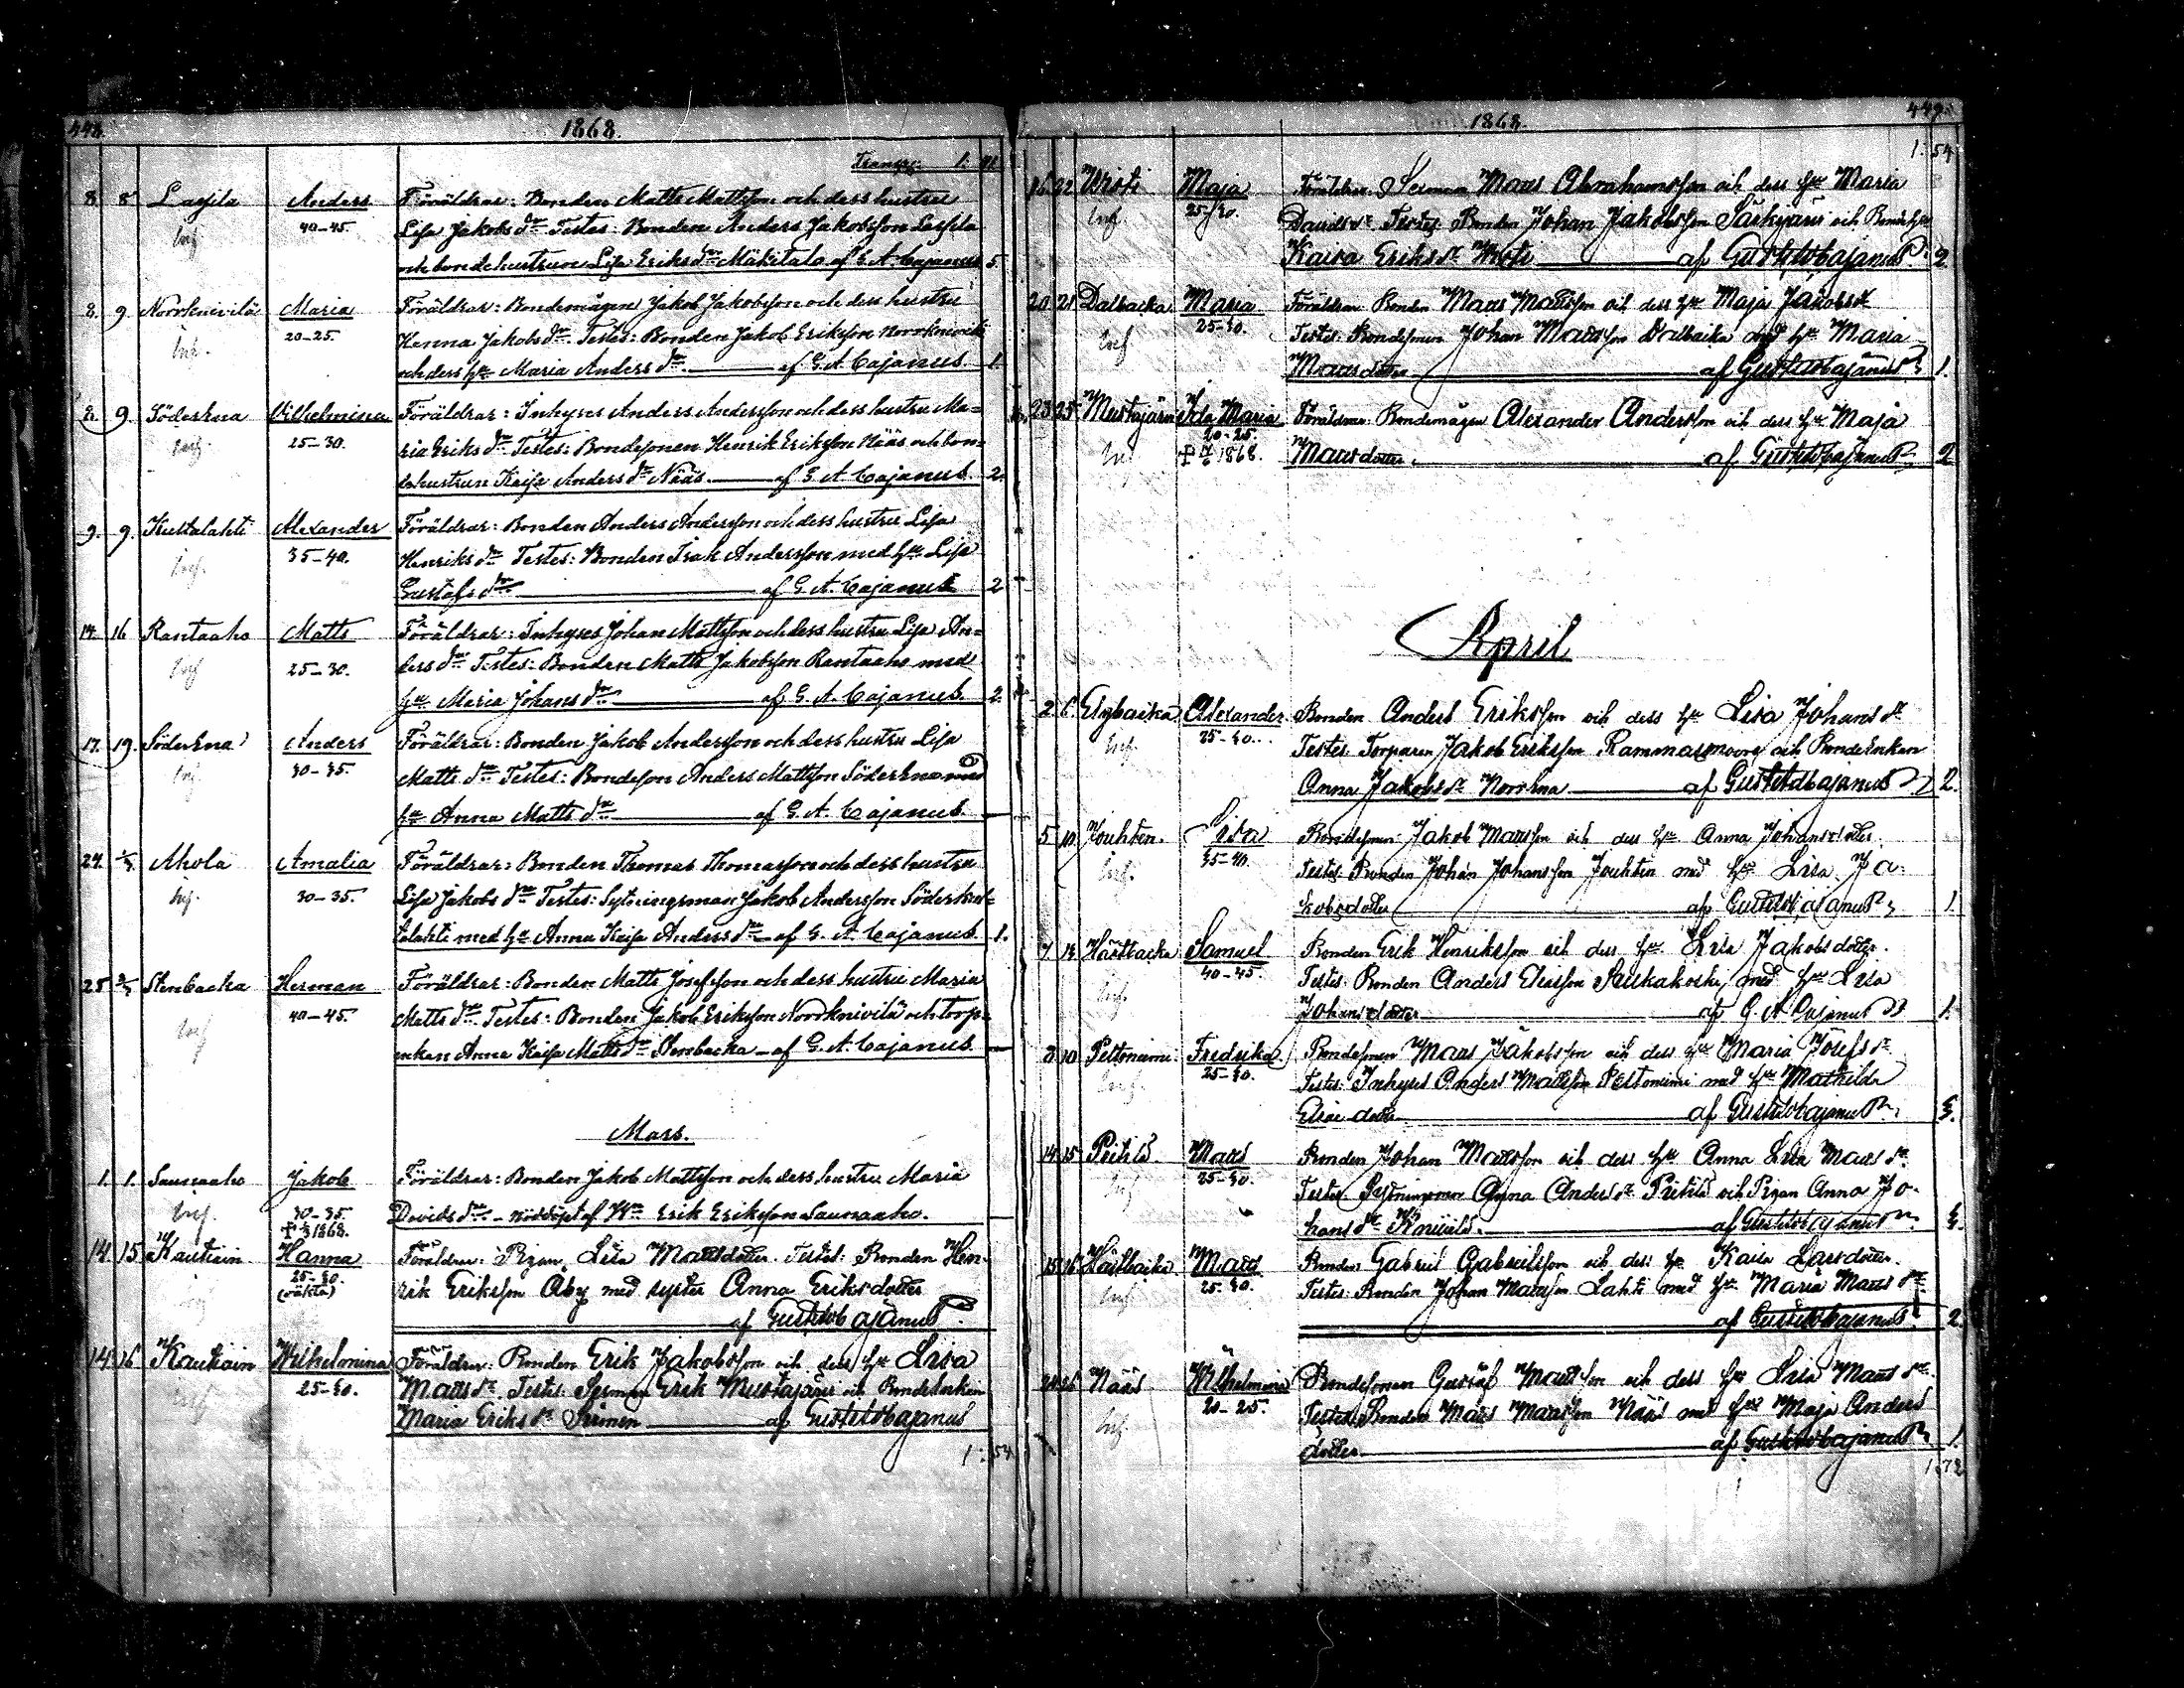 448.
1868.
Transp: 1. 41.
8. 8 Lassila Anders Föräldrar: Bonden Matts Mattsson och dess hustru
Inf. 40-45. Lisa Jakobs dr. Testes: Bonden Anders Jakobsson Lassila
och bondehustrun Lisa Eriks dr Mäkitalo af G. A. Cajanus 5.
8. 9. Norrknivilä Maria Föräldrar: Bondemågen Jakob Jakobsson och dess hustru
Inf. 20-25. Henna Jakobs dr. Testes: Bonden Jakob Eriksson Norrknivilä
och dess hu Maria Anders dr af G. A. Cajanus. 1.
8. 9. Söderkna Vilhelmina Föräldrar: Inhyses Anders Andersson och dess hustru Ma-
Inf. 25-30. ria Eriks dr Testes: Bondesonen Henrik Eriksson Nääs och bon-
dehustrun Kajsa Anders dr Nääs. af G. A. Cajanus. 2.
9. 9. Kultalahti Alexander Föräldrar: Bonden Anders Andersson och dess hustru Lisa
Inf. 35-40. Henriks dr Testes: Bonden Isak Andersson med hu Lisa
Gustafs dr af G. A. Cajanus 2
14. 16 Rantaaho Matts Föräldrar: Inhyses Johan Mattsson och dess hustru Lisa An-
Inf 25-30. ders dr Testes: Bonden Matts Jakobsson Rantaaho med
hu Maria Johans dr af G. A. Cajanus. 2.
17. 19. Söderkna Anders Föräldrar: Bonden Jakob Andersson och dess hustru Lisa
Inf. 30-35. Matts dr Testes: Bondeson Anders Mattsson Söderkna med
hu Anna Matts dr af G. A. Cajanus.
24. 1/3 Ahola Amalia Föräldrar: Bonden Thomas Thomasson och dess hustru
Inf. 30-35. Lisa Jakobs dr Testes: Sytningsman Jakob Andersson Söderkul-
talahti med hu Anna Kajsa Anders dr af G. A. Cajanus. 1.
25 2/3 Stenbacka Herman Föräldrar: Bonden Matts Josefsson och dess hustru Maria
Inf 40-45. Matts dr. Testes: Bonden Jakob Eriksson Nordknivilä och torp-
enkan Anna Kajsa Matts dr Stenbacka af G. A. Cajanus.
Mars.
1. 1. Saunaaho Jakob Föräldrar: Bonden Jakob Mattsson och dess hustru Maria
Inf. 30-35. Davids dr - nöddöpt af Erik Eriksson Saunaaho.
1868.
14. 15 Kautiain Hanna Föräldrar: Pigan Lisa Mattsdotter. Testes: Bonden Hen-
25-30. (oäkta) rik Eriksson Åby med syster Anna Eriksdotter
af Gust. A. Cajanus
14. 16 Kautiain Wilhelmina Föräldrar: Bonden Erik Jakobsson och dess hu Lisa
Inf 25-30. Matts dr. Testes: Erik Mustajärvi och Bondeenkan
Maria Eriks dr af Gust. A. Cajanus
1: 54.
449.
1868.
1: 54
16 22 Wirsti Maja Föräldrar: Mats Abrahamsson och dess hu Maria
Inf. 25-30. Davids dr Testes: Bonden Johan Jakobsson Särkijärvi och Bondehu
Kaisa Eriks dr af Gust. A. Cajanus 2
20 21 Dalbacka Maria Föräldrar: Bonden Mats Matsson och dess hu Maja Jakobs dr
Inf 25-30. Testes: Bondesonen Johan Matsson Dalbacka med hu Maria
Matsdotter af Gust. A. Cajanus 1.
23 25 Mustajärvi Ida Maria Föräldrar: Bondemågen Alexander Andersson och dess hu Maja
20-25. 1868. Matsdotter. af Gust. A. Cajanus 2
April
2 6. Elgbacka Alexander Bonden Anders Eriksson och dess hu Lisa Johans dr
Inf. 25-30. Testes: Torparen Jakob Eriksson och Bondeenkan
Anna Jakobs dr Norrkna af Gust. A. Cajanus 2.
5 10 Jouhten. Lisa Bondesonen Jakob Matsson och dess hu Anna Johansdotter.
Inf. 35-40. Testes: Bonden Johan Johansson Jouhten med hu Lisa Ja-
kobsdotter af Gust. A. Cajanus 1.
7 13 Hästbacka Samuel Bonden Erik Henriksson och dess hu Lisa Jakobsdotter.
Inf. 40-45. Testes: Bonden Anders Eliasson med hu Lisa
Johansdotter af G. A. Cajanus 1.
8 10 Peltoniemi Fredrika Bondesonen Mats Jakobsson och dess hu Maria Josefs dr
Inf. 25-30. Testes: Inhyses Anders Matsson Peltoniemi med hu Mathilda
Elias dotter af Gust. A. Cajanus
14 15 Pethilä Mats Bonden Johan Matsson och dess hu Anna Lisa Mats dr.
Inf 25-30. Testes: Anna Anders dr och Pigan Anna Jo-
hans dr af Gust. A. Cajanus
15 16 Hästbacka Mats Bonden Gabriel Gabrielsson och dess hu Kaisa Larsdotter.
Inf 25-30. Testes: Bonden Johan Matsson Lahti med hu Maria Mats dr
af Gust. A. Cajanus 2.
Nääs Wilhelmina Bondesonen Gustaf Matsson och dess hu Lisa Mats dr.
Inf. 20-25. Testes: Bonden Mats Matsson Nääs med hu Maja Anders
dotter af Gust. A. Cajanus 1.
1. 72